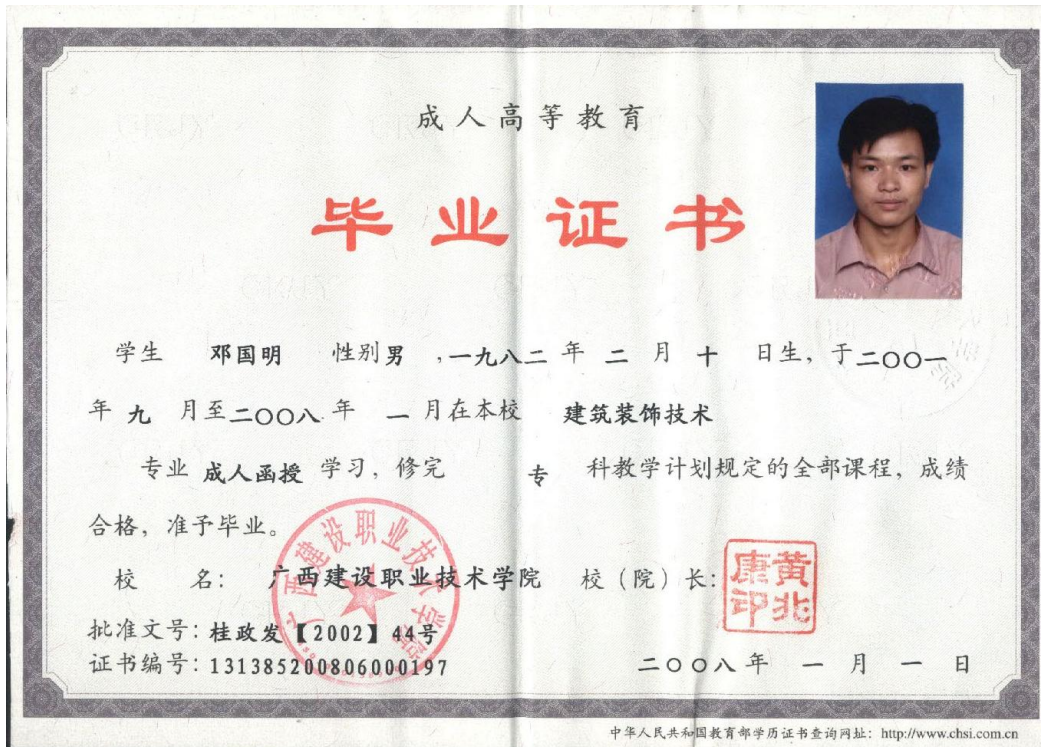 成人高等教育
毕业证书
学生 邓国明 性别男，一九八二年二月十日生，于二〇〇一
年九月至二〇〇八年一月在本校 建筑装饰技术
专业 成人函授 学习，修完 专 科教学计划规定的全部课程，成绩
合格，准予毕业。
校 名：广西建设职业技术学院 校（院）长：
黄北康印
广西建设职业技术学院
批准文号：桂政发【2002】44号
证书编号：131385200806000197
二〇〇八年一月一日
中华人民共和国教育部学历证书查询网址：http://www.chsi.com.cn